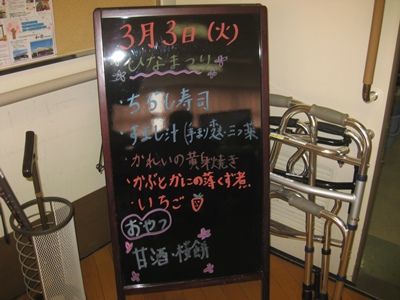 3月3日(火)
ひなまつり
・ちらし寿司
・すまし汁(手まり麩・三つ葉)
・かれいの黄身焼き
・かぶとカニの薄くず煮
・いちご
おやつ
甘酒・桜餅